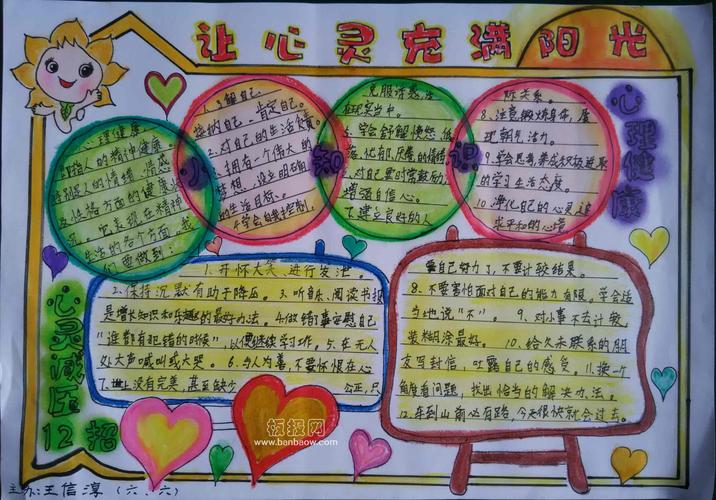 让心灵充满阳光
心理健康
小知识
心理健康
心理健康
是指人的精神健康。
特别是人的情绪、情感
及性格方面的健康状
况。它表现在精神
生活的各个方面。我
们要做到:
1.了解自己
接纳自己,肯定自己。
2.对自己的生活负责。
3.拥有一个伟大的
梦想,设立明确
的生活目标。
4.学会自我控制,
克服诱惑,活
在现实当中。
5.学会舒解愤怒、低
落、忧郁、厌倦的情绪
6.对自己要时常鼓励,
增强自信心。
7.建立良好的人
际关系。
8.注意锻炼身体,展
现朝气活力。
9.学会思考,养成积极进取
的学习生活态度。
10.净化自己的心灵,追
求平和的心境
心灵减压
12招
1.开怀大笑,进行发泄。
2.保持沉默有助于降压。3.听音乐、阅读书报
是增长知识和乐趣的最好办法。4.做错了事安慰自己
“谁都有犯错的时候”,以便继续学习工作。5.在无人
处大声喊叫或大哭。6.与人为善,不要怀恨在心
7.世上没有完美,甚至缺少公正,只
要自己努力了,不要计较结果。
8.不要害怕面对自己的能力有限。学会适
当地说“不”。9.对小事不去计较,
装糊涂最好。10.给久未联系的朋
友写封信,吐露自己的感受。11.换一个
角度看问题,找出恰当的解决办法。
12.车到山前必有路,今天很快就会过去。
板报网
www.banbaow.com
主办:王信淳(六、六)